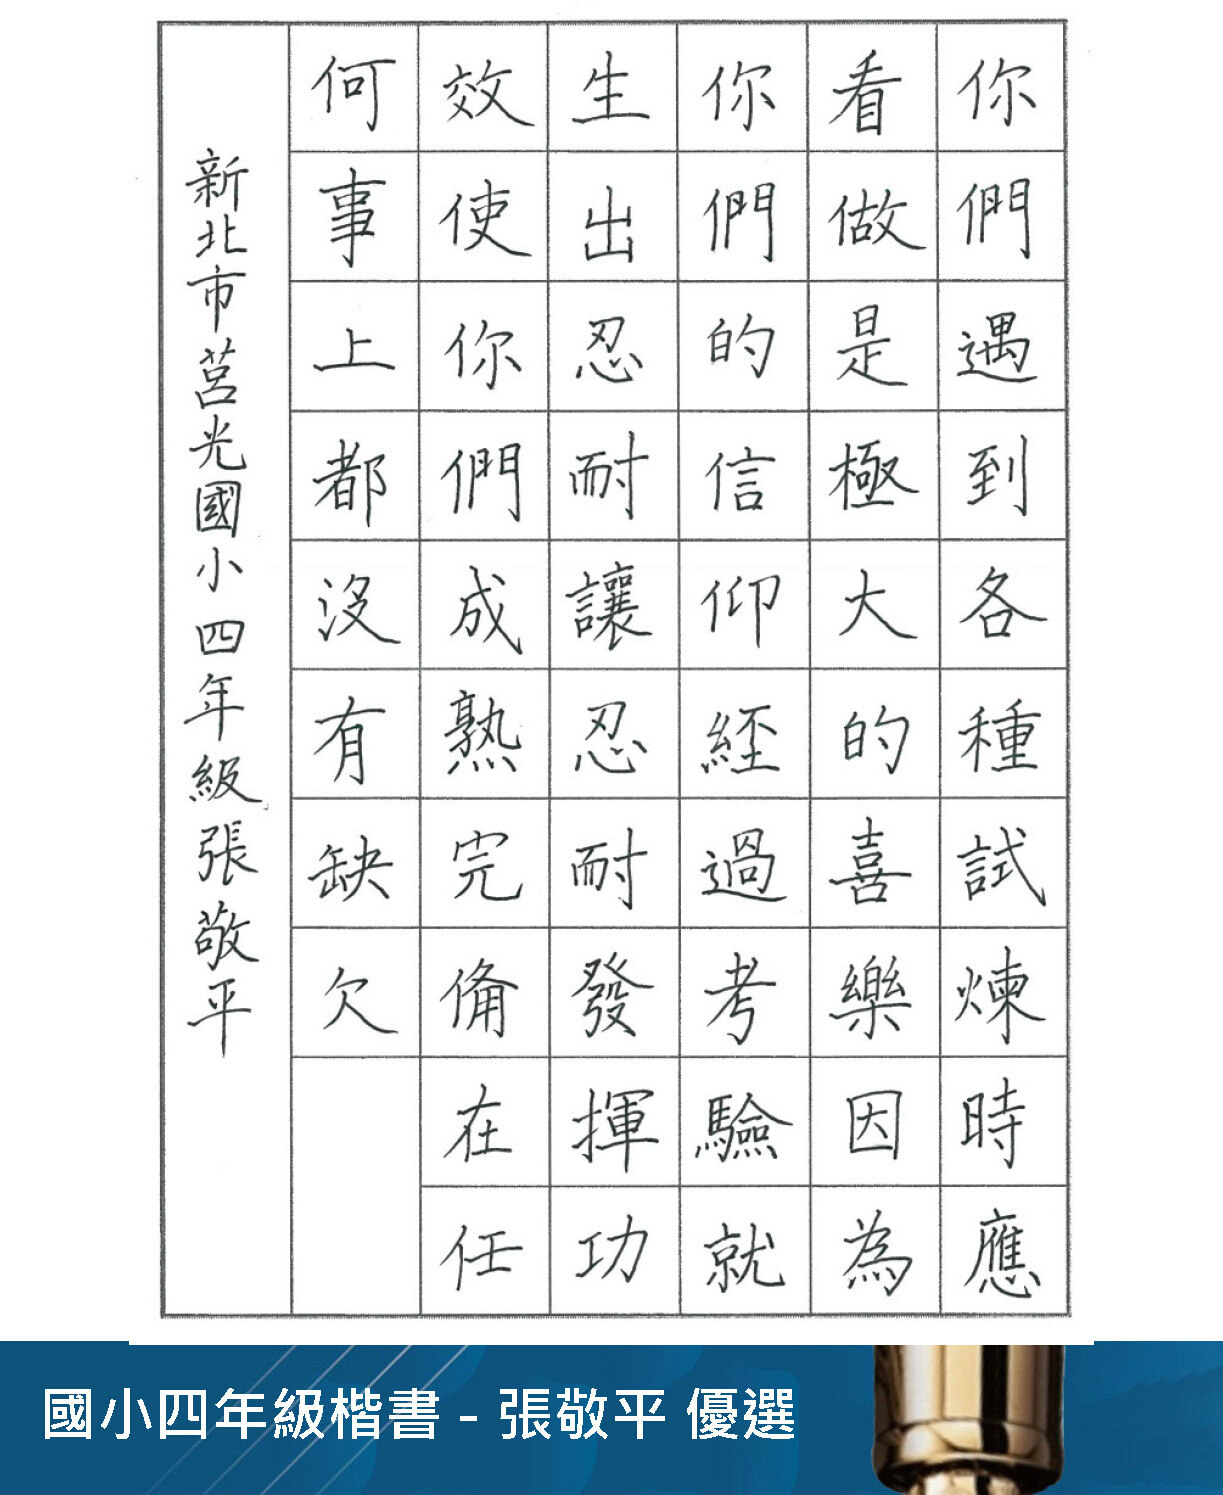 你們遇到各種試煉時應
看做是極大的喜樂因為
你們的信仰經過考驗就
生出忍耐讓忍耐發揮功
效使你們成熟完備在任
何事上都沒有缺欠
新北市莒光國小四年級張敬平
國小四年級楷書 - 張敬平 優選